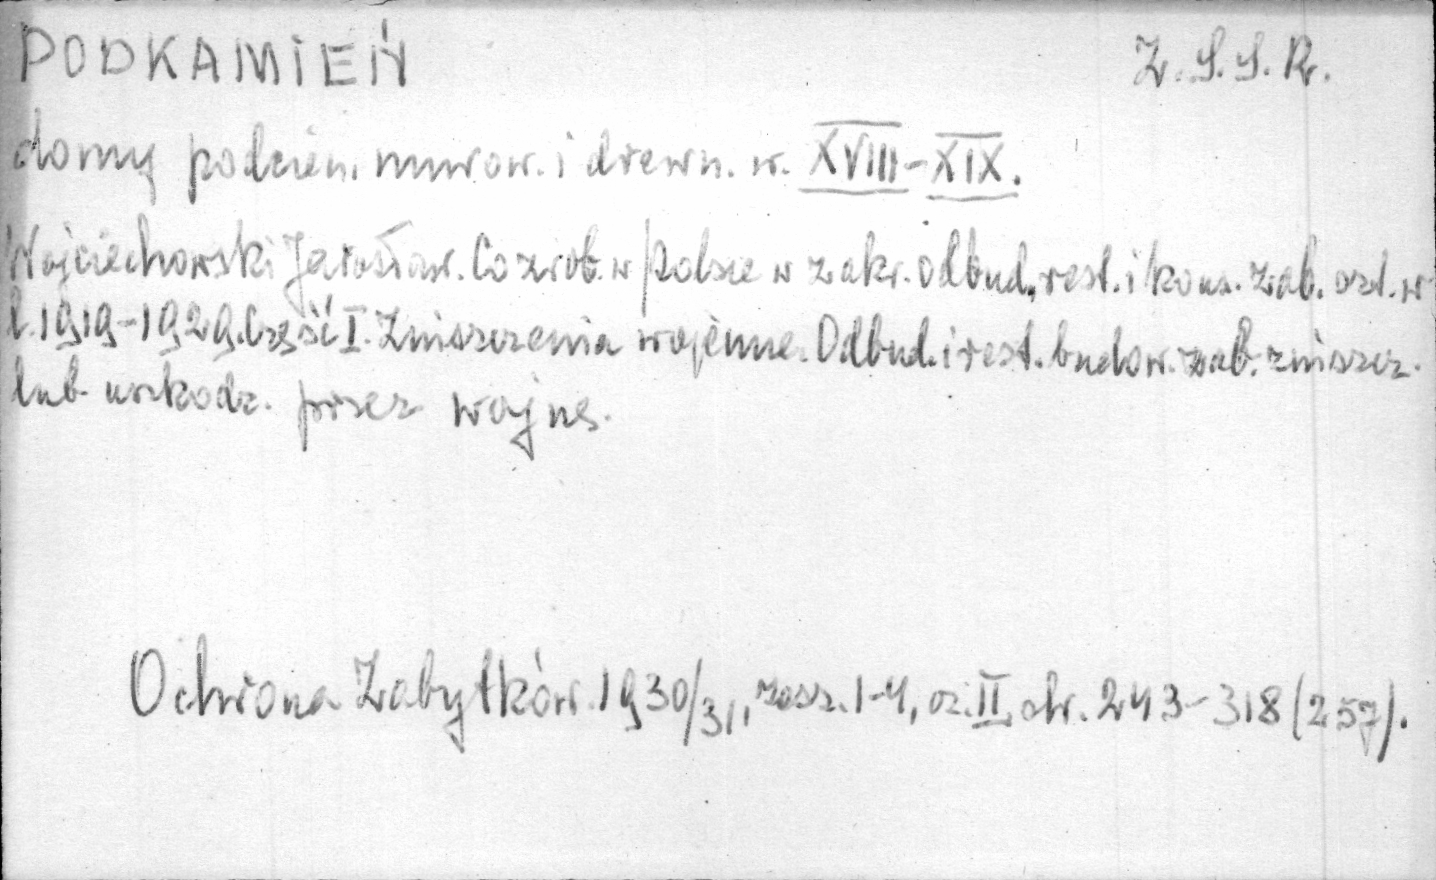 PODKAMIEŃ Z.S.S.R.
domy podcien. murow. i drewn. w. XVIII-XIX.
Wojciechowski Jarosław. Co zrob. w Polsce w zakr. odbud., rest. i kons. zab. szt. w
l. 1919-1929. Część I. Zniszczenia wojenne. Odbud. i rest. budow. zab. zniszcz.
lub uszkodz. przez wojnę.
Ochrona Zabytków. 1930/31, zesz. 1-4, cz. II, str. 243-318 (257).